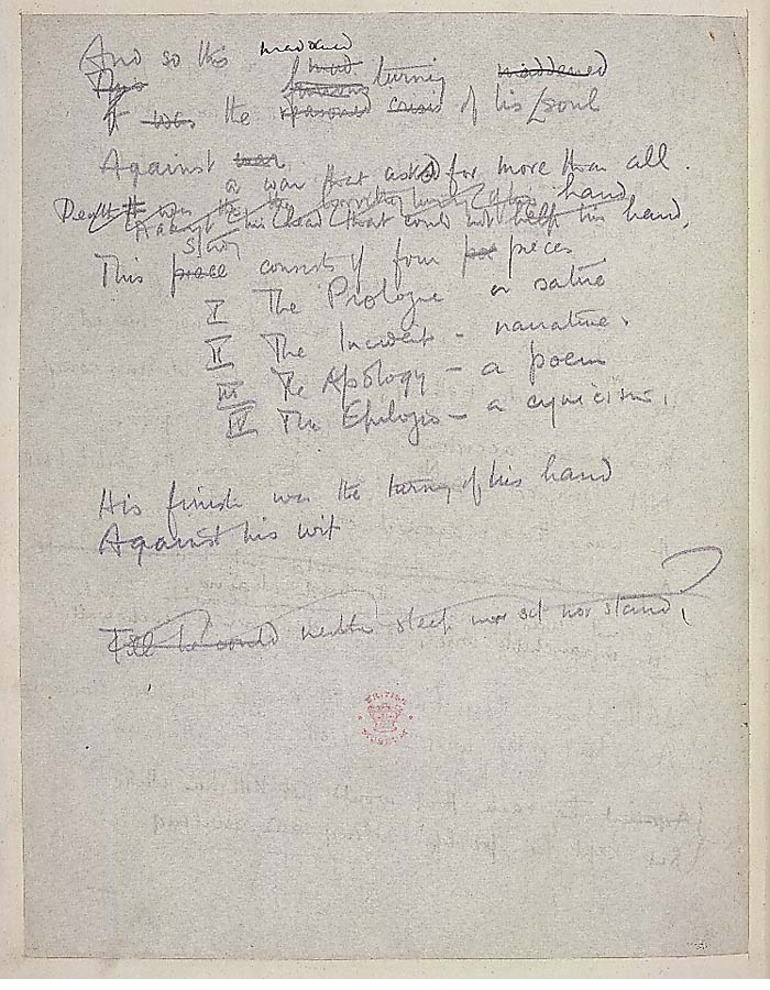 And so this maddened
This mad turning maddened
It was the reasoned crisis of his soul
Against war
a war that asked for more than all.
Death it was the hand
Against his head that could not help his hand,
story
This piece consists of four pieces
I The Prologue a satire
II The Incident - narrative.
III The Apology - a poem
IV The Epilogue - a cynicism.
His finish was the turning of his hand
Against his wit
Till he could neither sleep nor sit nor stand,
BRITISH MUSEUM